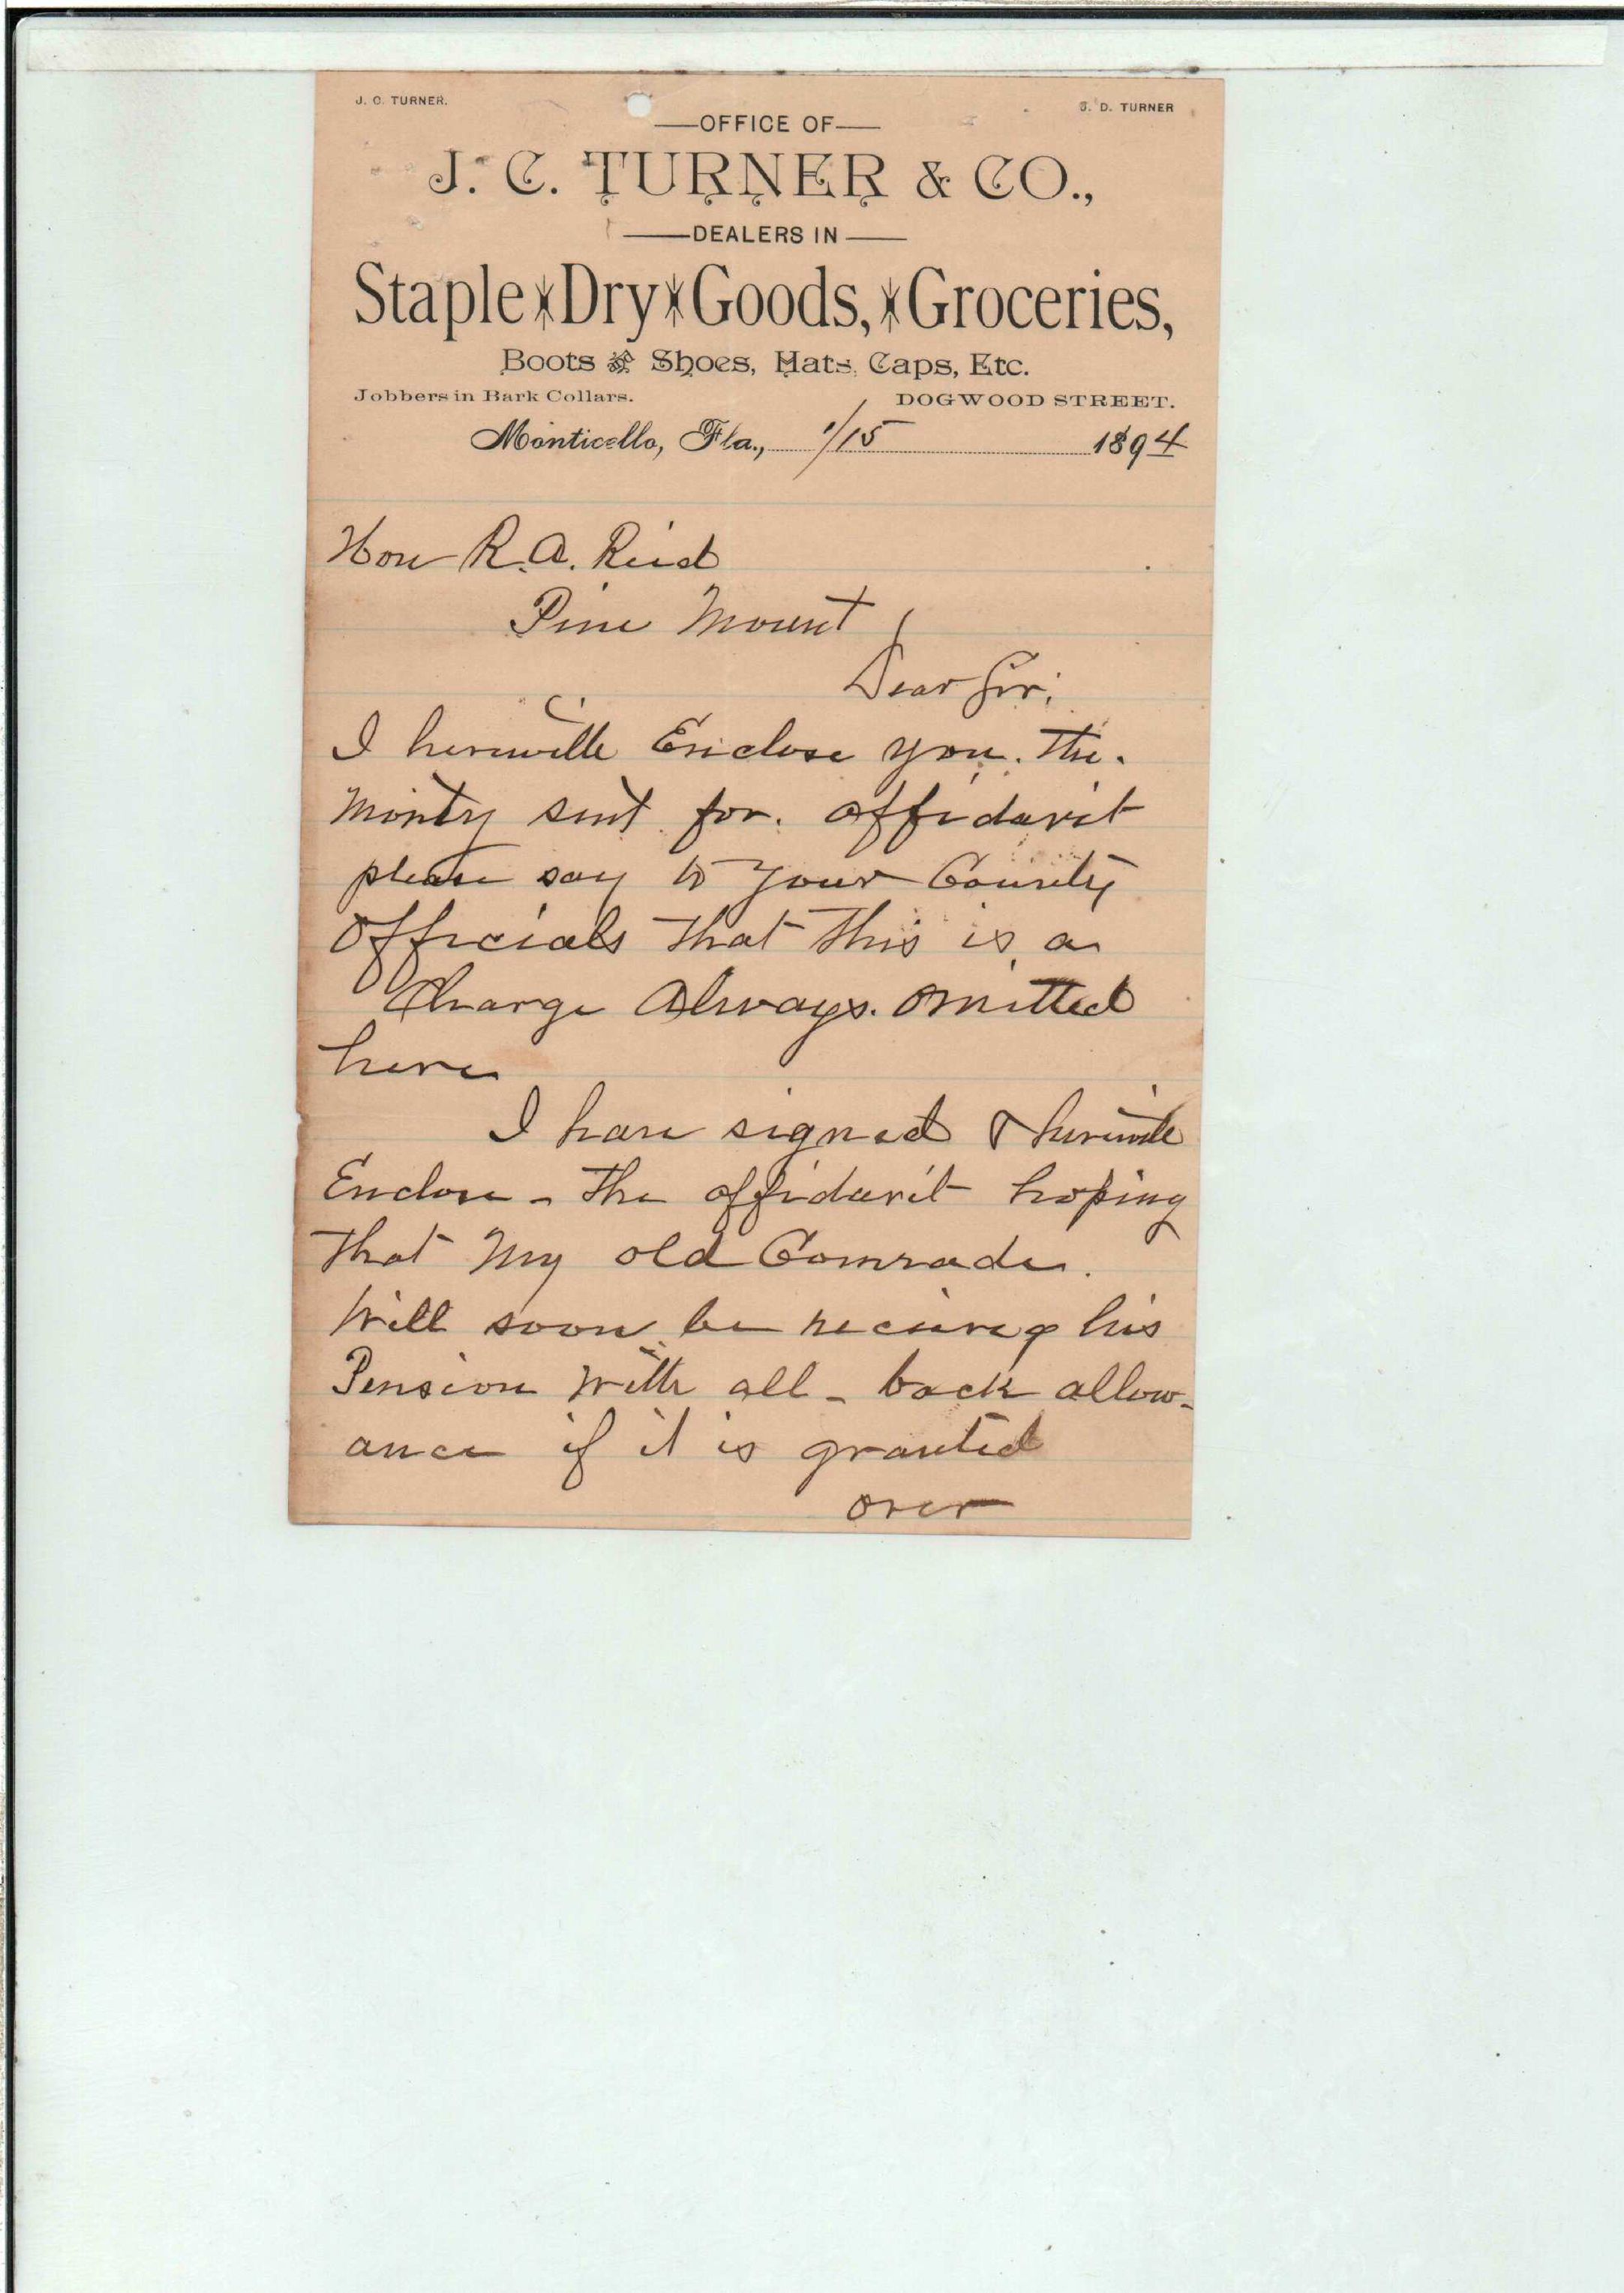 J. C. TURNER.
J. D. TURNER
—OFFICE OF—
J. C. TURNER & CO.,
—DEALERS IN—
Staple Dry Goods, Groceries,
Boots & Shoes, Hats, Caps, Etc.
Jobbers in Bark Collars.
DOGWOOD STREET.
Monticello, Fla., 1/15 1894
Hon R. A. Reid
Pine Mount
Dear Sir:
I herewith Enclose you. The.
Money sent for. affidavit
please say to your County
Officials that this is a
Charge Always. omitted
here
I have signed & herewith
Enclose - The affidavit hoping
that My old Comrade.
Will soon be receiving his
Pension With all - back allow-
ance if it is granted
over